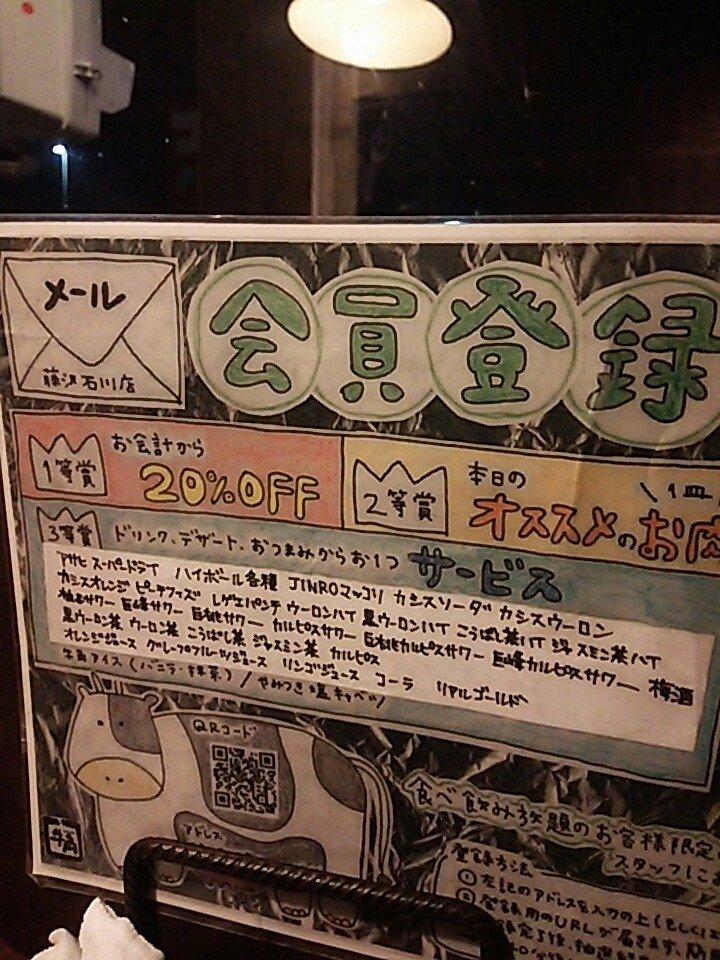 メール
藤沢石川店
会員登録
1等賞
お会計から
20%OFF
2等賞
本日の
オススメのお肉
1皿
3等賞
ドリンク、デザート、おつまみからお1つ サービス
アサヒ スーパードライ ハイボール各種 JINROマッコリ カシスソーダ カシスウーロン
カシスオレンジ ピーチフィズ レゲエパンチ ウーロンハイ 黒ウーロンハイ こうばし茶ハイ ジャスミン茶ハイ
柚子サワー 巨峰サワー 白桃サワー カルピスサワー 白桃カルピスサワー 巨峰カルピスサワー 梅酒
黒ウーロン茶 ウーロン茶 こうばし茶 ジャスミン茶 カルピス
オレンジジュース グレープフルーツジュース リンゴジュース コーラ リアルゴールド
牛角アイス(バニラ・抹茶)/やみつき塩キャベツ
QRコード
アドレス
牛角
食べ飲み放題のお客様限定
スタッフに
登録方法
① 左記のアドレスを入力の上(もしくは
② 登録用のURLが届きます。
完了後、抽選